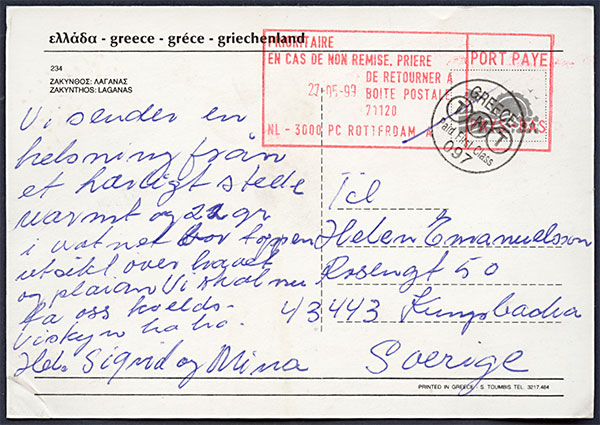 ελλάδα - greece - gréce - griechenland
234
ΖΑΚΥΝΘΟΣ: ΛΑΓΑΝΑΣ
ZAKYNTHOS: LAGANAS
PRIORITAIRE
EN CAS DE NON REMISE. PRIERE
DE RETOURNER A
22-05-99 BOITE POSTALE
71120
NL - 3000 PC ROTTERDAM
PORT PAYE
PAYS-BAS
GREECE
TNT
Paid First Class
097
Vi sender en
helsning från
et herligt stede
varmt og 22 gr
i vatnet bor toppen
utsikt over havet
og plaian Vi skal nu
ta oss kvelds-
viskyn ha ha.
Hels Sigrid og Mina
Til
Helen Emanuelsson
Rosengt 50
43443 Kungsbacka
Sverige
PRINTED IN GREECE - S. TOUMBIS TEL. 3217.464